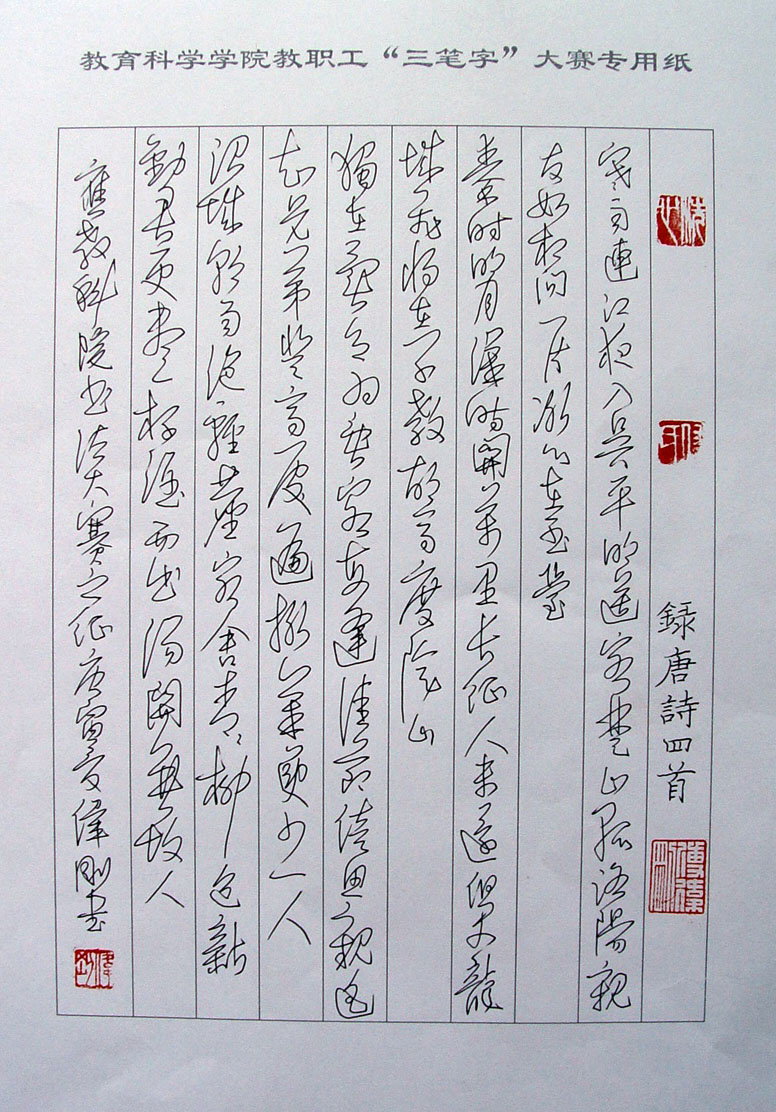 教育科学学院教职工“三笔字”大赛专用纸
録唐詩四首
寒雨連江夜入吳平明送客楚山孤洛陽親
友如相问一片冰心在玉壺
秦时明月漢時關萬里长征人未還但使龍
城飛将在不教胡馬度陰山
獨在異乡为異客每逢佳節倍思親遥
知兄弟登高處遍插茱萸少一人
渭城朝雨浥輕塵客舍青青柳色新
勸君更盡一杯酒西出陽關無故人
應教科院书法大赛之征庚寅夏偉剛书